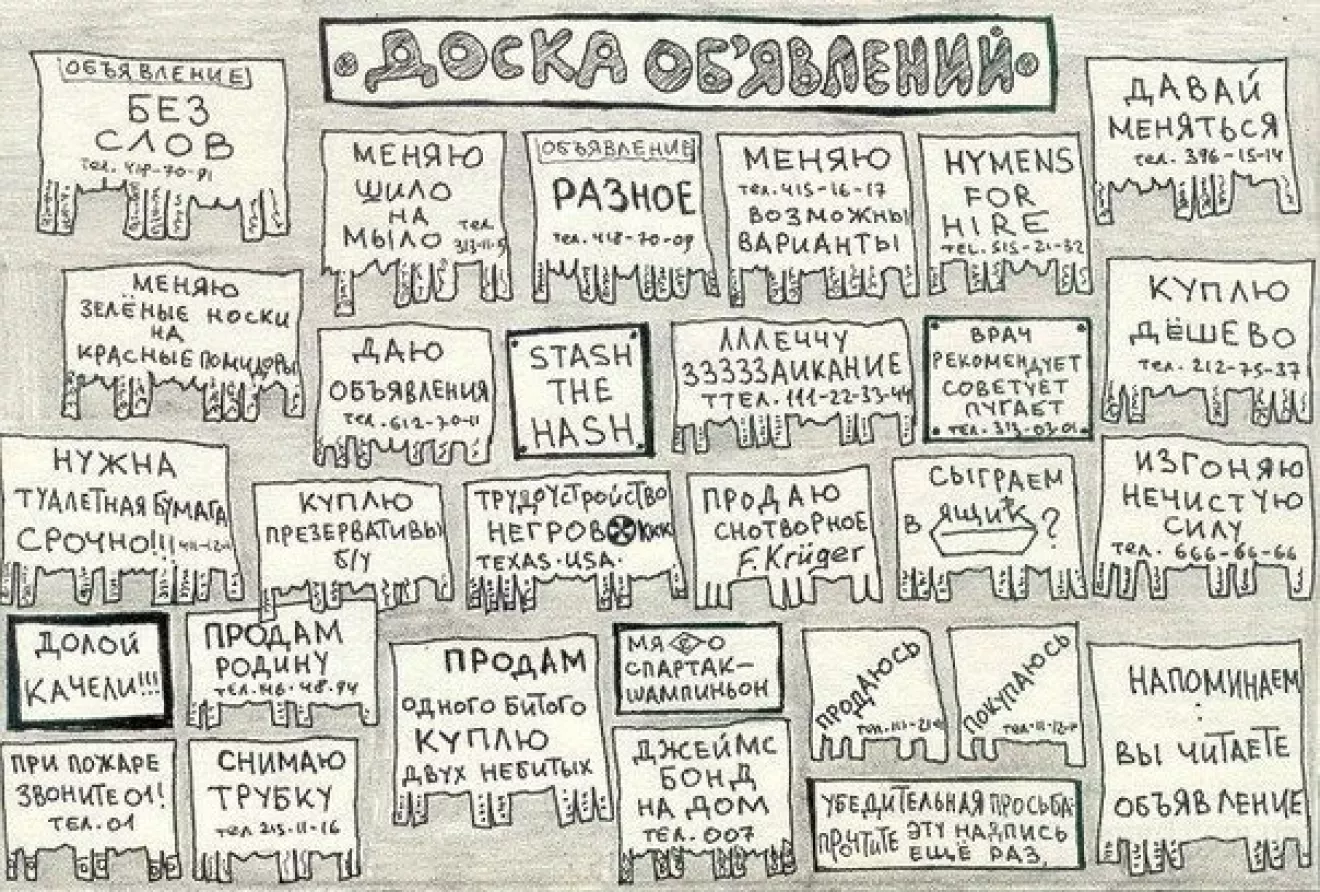 ДОСКА ОБ'ЯВЛЕНИЙ
ОБЪЯВЛЕНИЕ
БЕЗ
СЛОВ
МЕНЯЮ
ШИЛО
НА
МЫЛО
тел.
ОБЪЯВЛЕНИЕ
РАЗНОЕ
тел. 418-70-09
МЕНЯЮ
тел. 415-16-17
ВОЗМОЖНЫ
ВАРИАНТЫ
HYMENS
FOR
HIRE
TEL. 515-21-32
ДАВАЙ
МЕНЯТЬСЯ
тел. 396-15-14
МЕНЯЮ
ЗЕЛЁНЫЕ НОСКИ
НА
КРАСНЫЕ ПОМИДОРЫ
ДАЮ
ОБЪЯВЛЕНИЯ
тел. 612-70-11
STASH
THE
HASH
ЛЛЛЕЧЧУ
ЗЗЗЗЗАИКАНИЕ
ТТЕЛ. 111-22-33-44
ВРАЧ
РЕКОМЕНДУЕТ
СОВЕТУЕТ
ПУГАЕТ
ТЕЛ. 313-03-01
КУПЛЮ
ДЁШЕВО
тел. 212-75-37
НУЖНА
ТУАЛЕТНАЯ БУМАГА
СРОЧНО!!!
КУПЛЮ
ПРЕЗЕРВАТИВЫ
Б/У
ТРУДОУСТРОЙСТВО
НЕГРОВ ККК
TEXAS·USA·
ПРОДАЮ
СНОТВОРНОЕ
F.Krüger
СЫГРАЕМ
В ЯЩИК?
ИЗГОНЯЮ
НЕЧИСТУЮ
СИЛУ
тел. 666-66-66
ДОЛОЙ
КАЧЕЛИ!!!
ПРОДАМ
РОДИНУ
ПРОДАМ
ОДНОГО БИТОГО
КУПЛЮ
ДВУХ НЕБИТЫХ
МЯ С О
СПАРТАК–
ШАМПИНЬОН
ПРОДАЮСЬ
ПОКУПАЮСЬ
НАПОМИНАЕМ
:
ВЫ ЧИТАЕТЕ
ОБЪЯВЛЕНИЕ
ПРИ ПОЖАРЕ
ЗВОНИТЕ 01!
ТЕЛ. 01
СНИМАЮ
ТРУБКУ
тел 215-11-16
ДЖЕЙМС
БОНД
НА ДОМ
ТЕЛ. 007
УБЕДИТЕЛЬНАЯ ПРОСЬБА:
ПРОЧТИТЕ ЭТУ НАДПИСЬ
ЕЩЁ РАЗ.